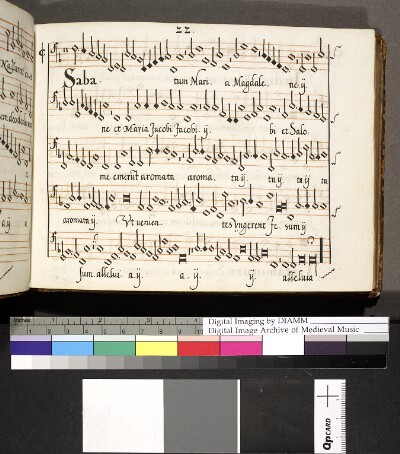 22.
Saba tum Mari. a Magdale. ne ij
ne et Maria Jacobi Jacobi. ij. bi et Salo
me emerūt aromata aroma. ta ij. ta ij. ta ij ta
aromata ij. Vt venien tes vngerent Je. sum ij
sum. allelui a ij. a. ij. ij. alleluia
a. ij. a
inches 1 2 3
Digital Imaging by DIAMM
Digital Image Archive of Medieval Music
QPCARD